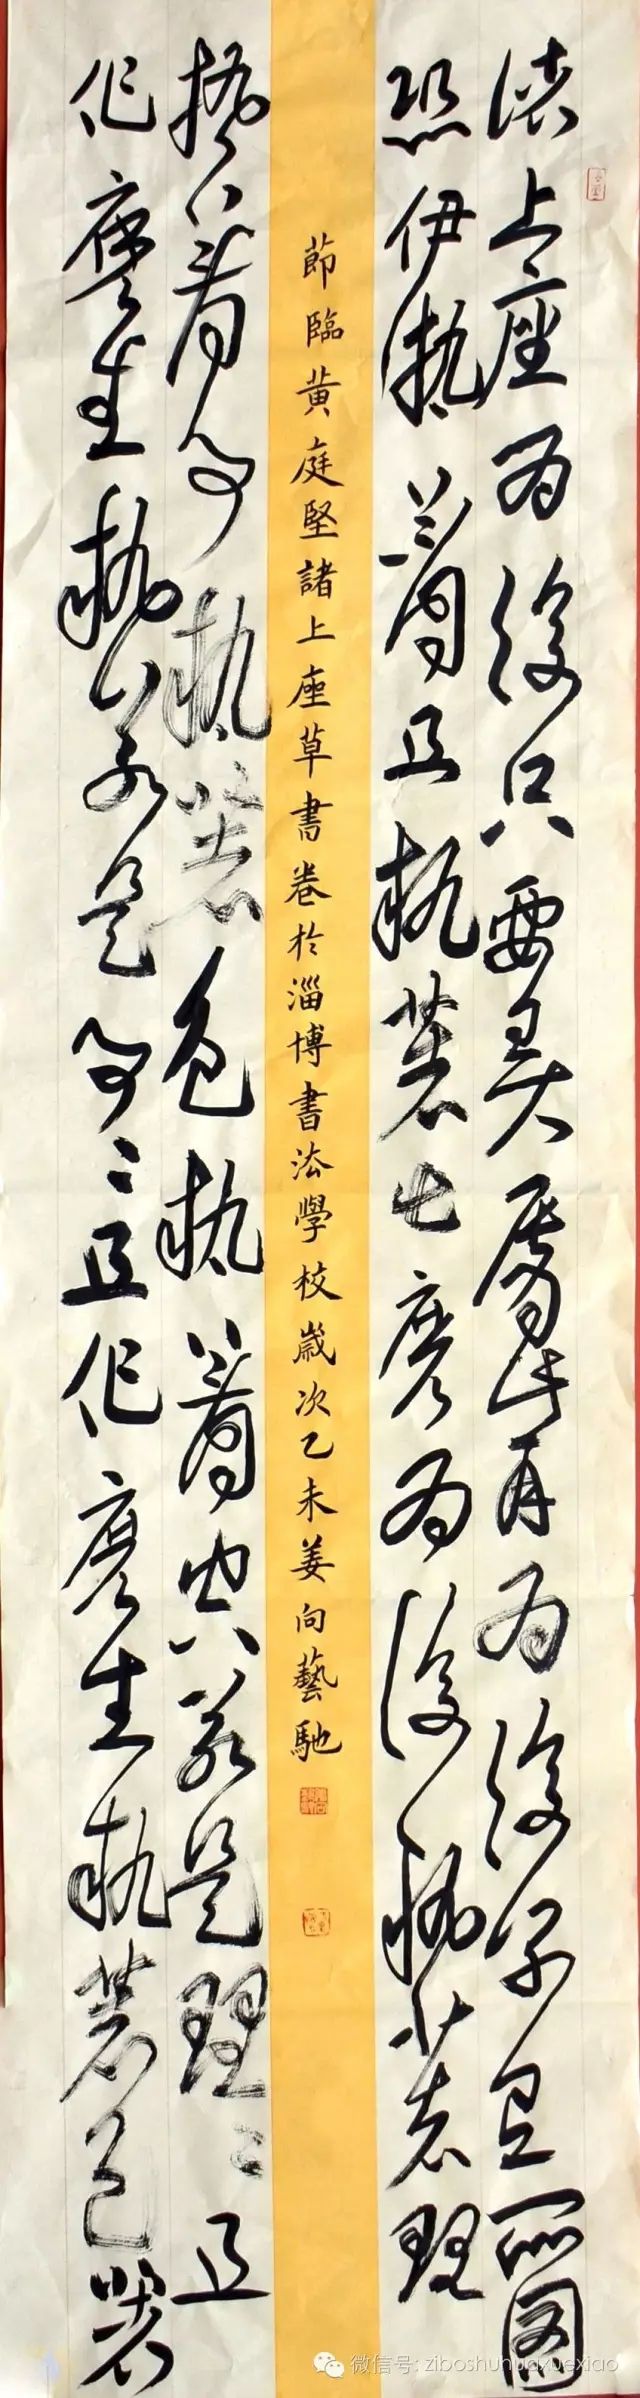 諸上座為復只要弄唇觜為復別有所圖
恐伊執著且執著甚麼為復執著理
節臨黃庭堅諸上座草書卷於淄博書法學校歲次乙未姜向藝馳
執著事執著色執著空若是理〻且
作麼生執若是事〻且作麼生執著色著
微信号: ziboshuhuaxuexiao